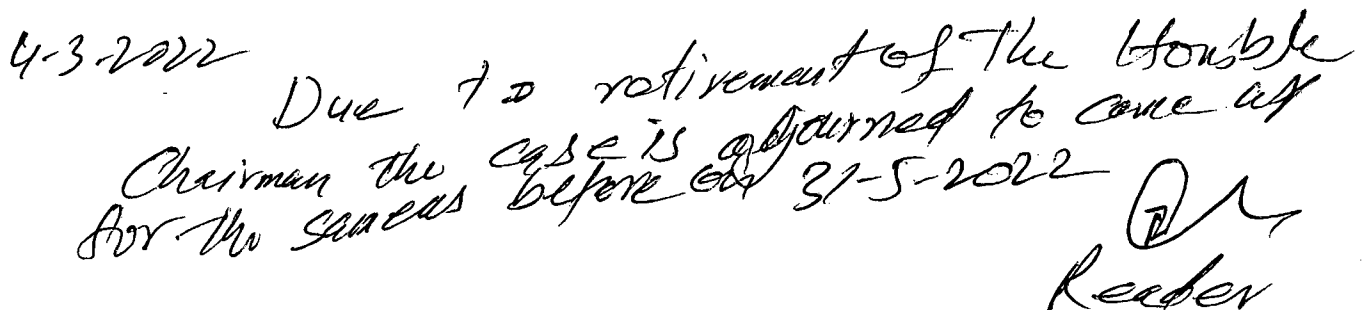 4-3-2022
Due to retirement of the Honible
Chairman the case is adjourned to come up
for the same as before on 31-5-2022
Reader